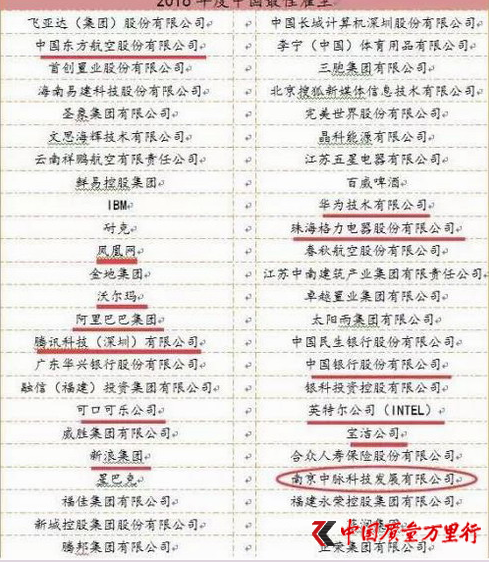 飞亚达（集团）股份有限公司 中国长城计算机深圳股份有限公司
中国东方航空股份有限公司 李宁（中国）体育用品有限公司
首创置业股份有限公司 三胞集团有限公司
海南易建科技股份有限公司 北京搜狐新媒体信息技术有限公司
圣奥集团有限公司 完美世界股份有限公司
文思海辉技术有限公司 晶科能源有限公司
云南祥鹏航空有限责任公司 江苏五星电器有限公司
鲜易控股集团 百威啤酒
IBM 华为技术有限公司
耐克 珠海格力电器股份有限公司
凤凰网 春秋航空股份有限公司
金地集团 江苏中南建筑产业集团有限责任公司
沃尔玛 卓越置业集团有限公司
阿里巴巴集团 太阳雨集团有限公司
腾讯科技（深圳）有限公司 中国民生银行股份有限公司
广东华兴银行股份有限公司 中国银行股份有限公司
融信（福建）投资集团有限公司 银科投资控股有限公司
可口可乐公司 英特尔公司（INTEL）
威胜集团有限公司 宝洁公司
新浪集团 合众人寿保险股份有限公司
星巴克 南京中脉科技发展有限公司
福佳集团有限公司 福建永荣控股集团有限公司
新城控股集团股份有限公司 集团有限公司
腾邦集团有限公司 正荣集团有限公司
中国质量万里行